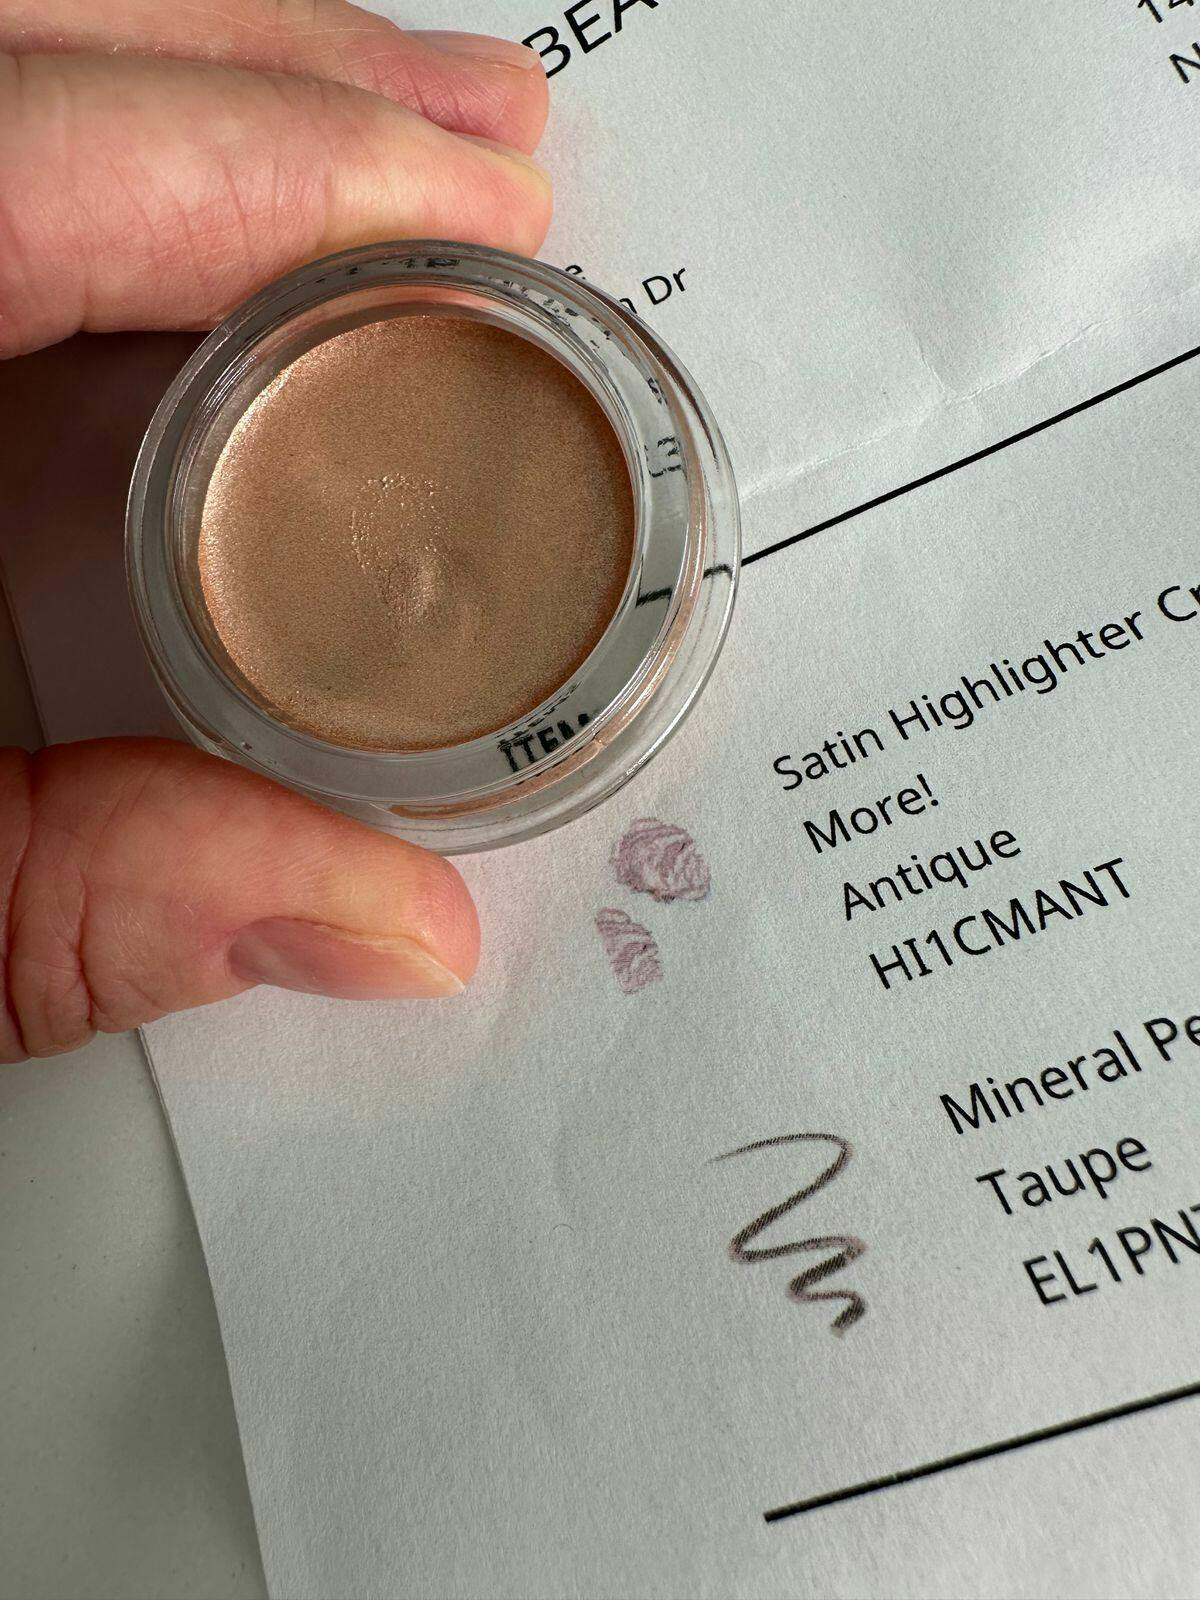 BEA
14
N
Dr
ITEM
Satin Highlighter Cr
More!
Antique
HI1CMANT
Mineral Pe
Taupe
EL1PN